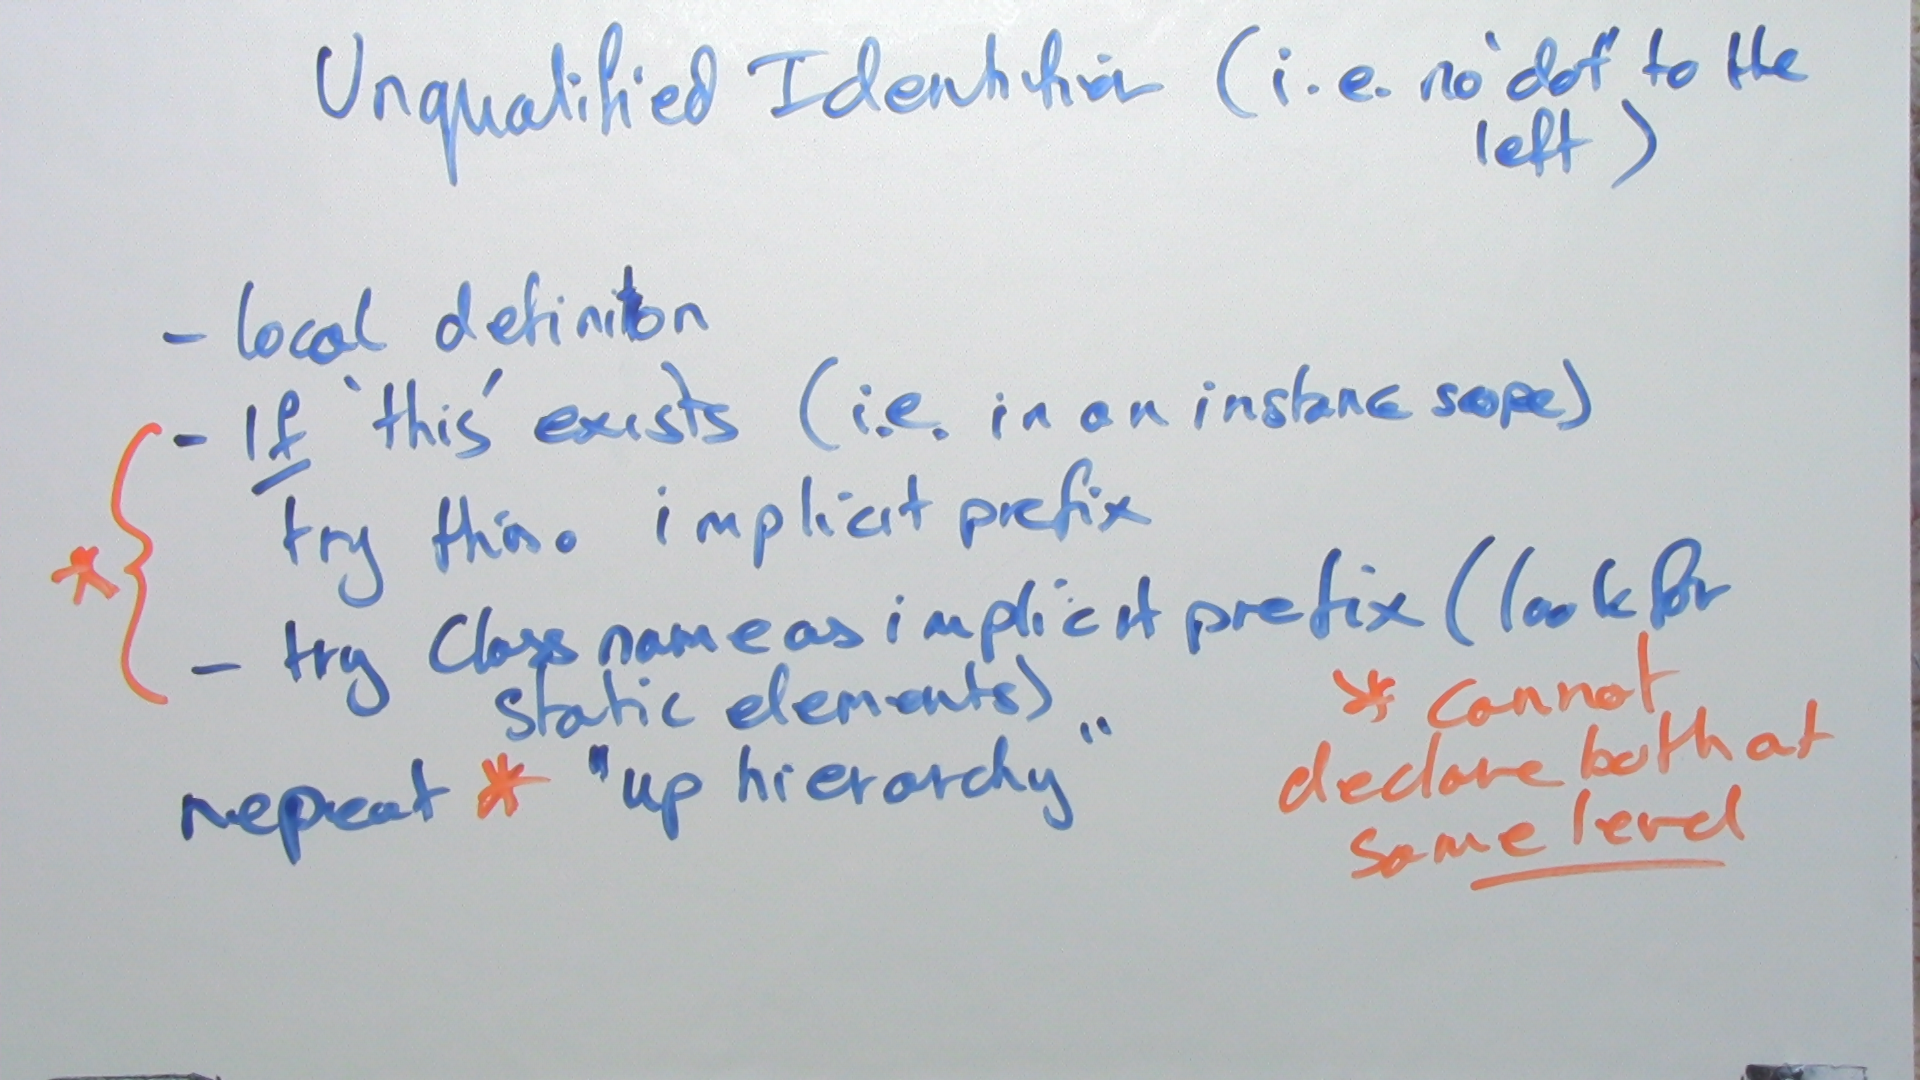 Unqualified Identifier (i.e. no 'dot' to the
left)
- local definition
- If 'this' exists (i.e. in an instance scope)
try this. implicit prefix
*
- try Class name as implicit prefix (look for
static elements)
repeat * "up hierarchy"
* cannot
declare both at
same level